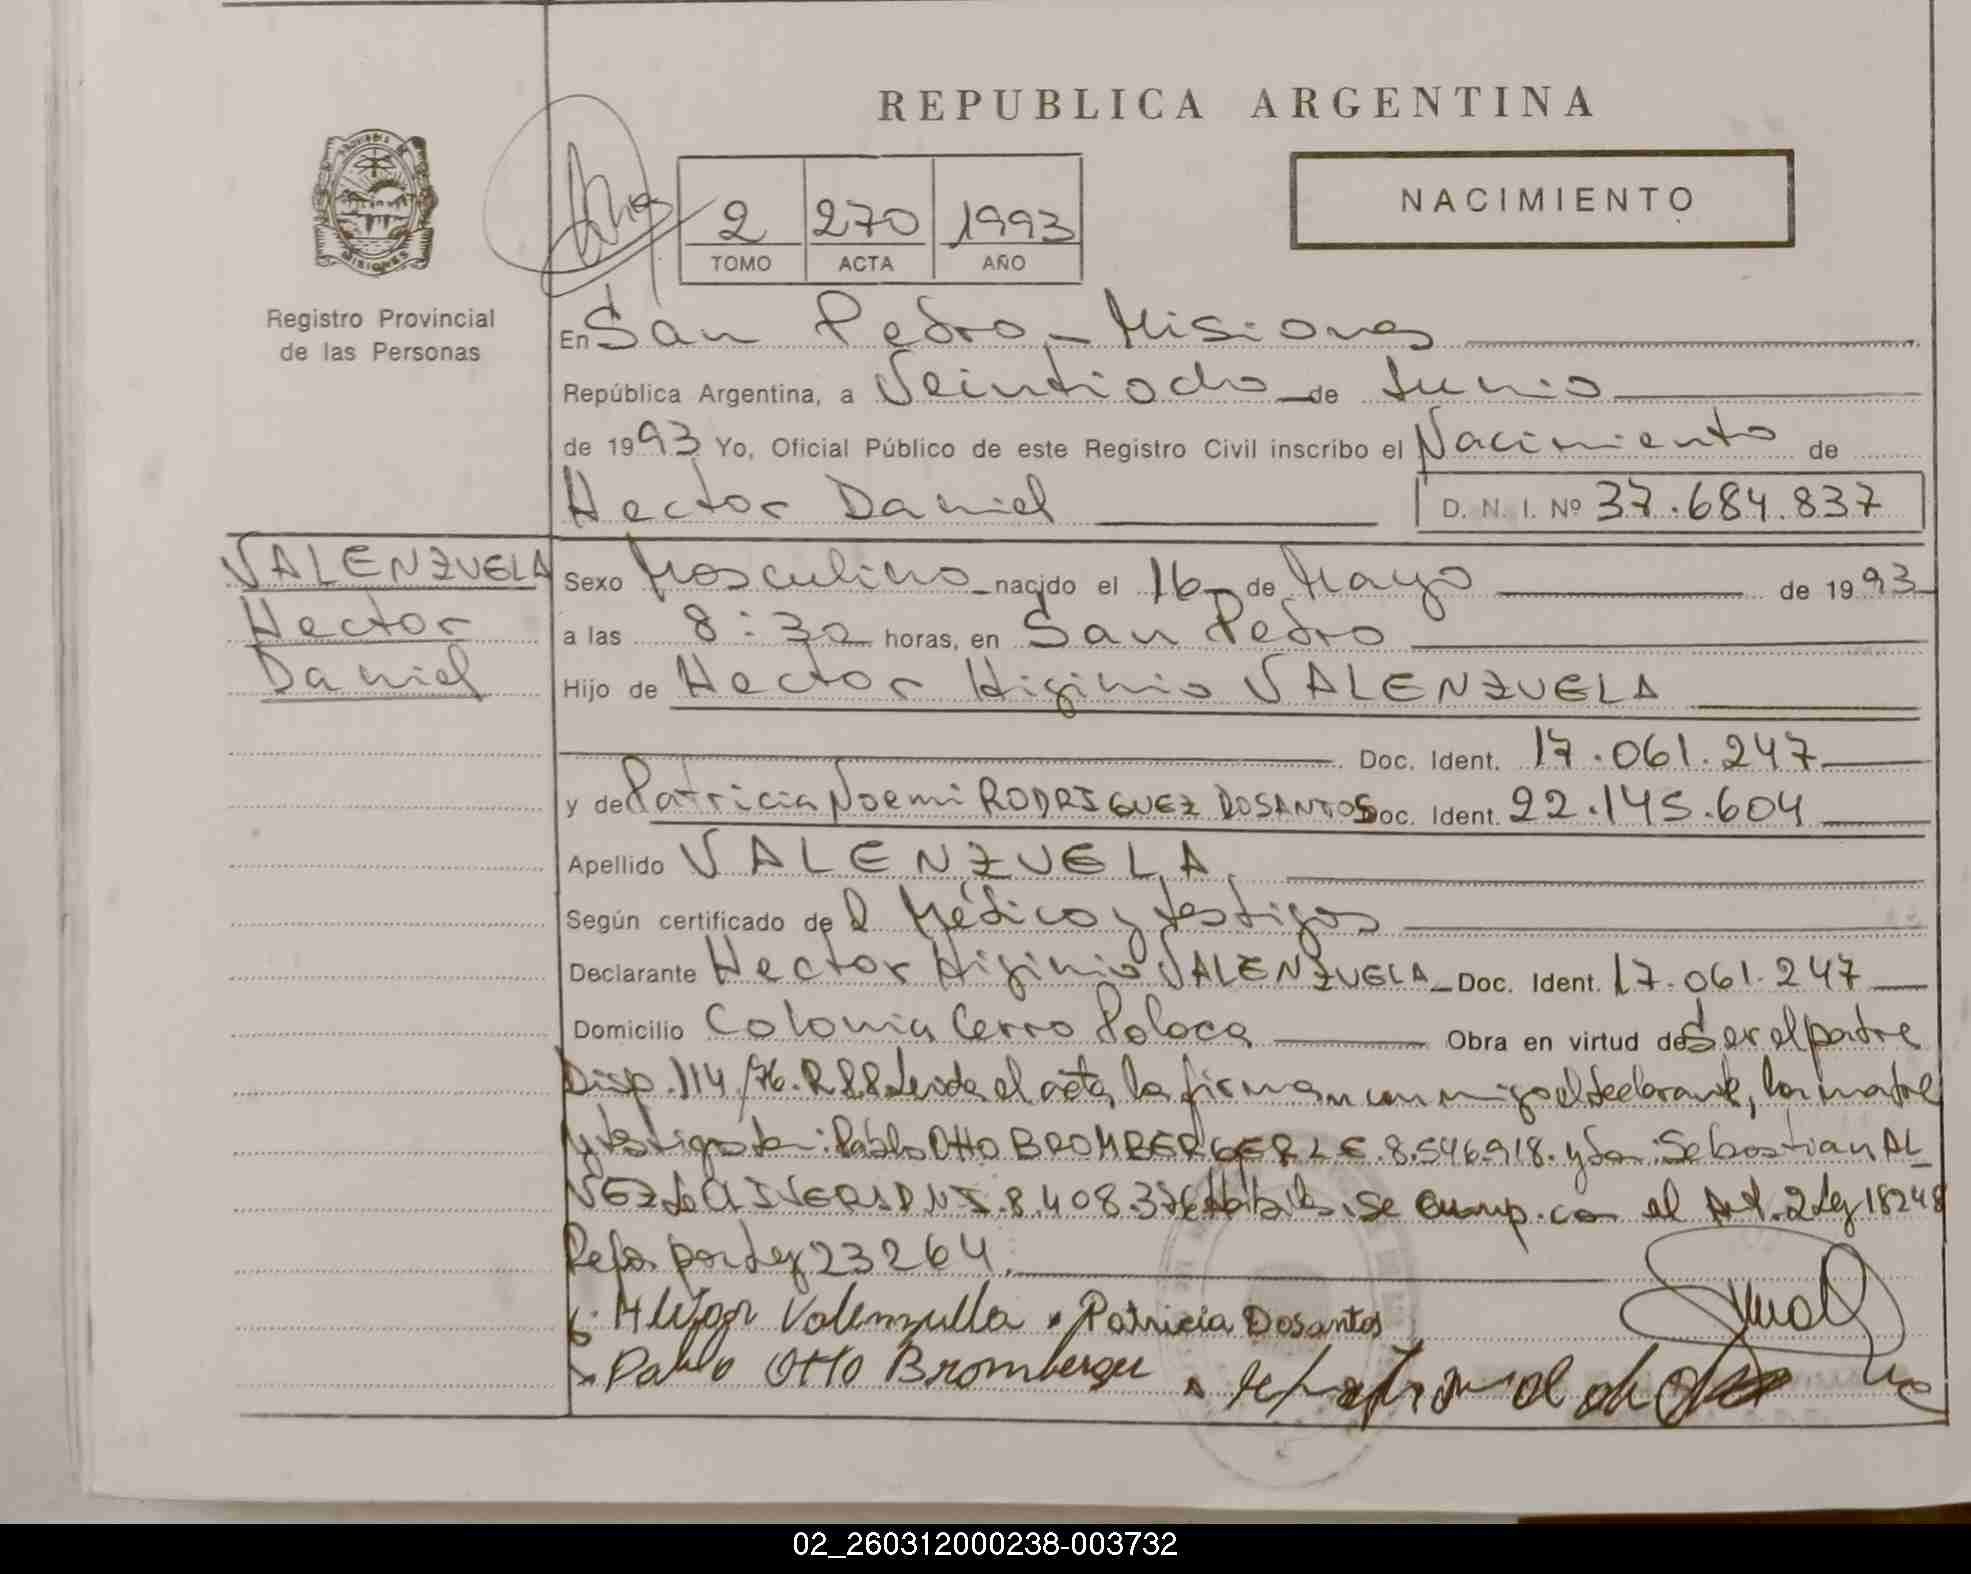 REPUBLICA ARGENTINA
PROVINCIA DE
MISIONES
Registro Provincial
de las Personas
2 270 1993
TOMO ACTA AÑO
NACIMIENTO
En San Pedro - Misiones
República Argentina, a Veintiocho de Junio
de 1993 Yo, Oficial Público de este Registro Civil inscribo el Nacimiento de
Hector Daniel D. N. I. Nº 37.684.837
VALENZUELA
Hector
Daniel
Sexo Masculino nacido el 16 de Mayo de 1993
a las 8:30 horas, en San Pedro
Hijo de Hector Higinio VALENZUELA
Doc. Ident. 17.061.247
y de Patricia Noemi RODRIGUEZ DOSANTOS Doc. Ident. 22.145.604
Apellido VALENZUELA
Según certificado de l Médico y testigos
Declarante Hector Higinio VALENZUELA Doc. Ident. 17.061.247
Domicilio Colonia Cerro Poloca Obra en virtud de Ser el padre
Disp. 114/76. R88 Leida el acta la firman conmigo el declarante, la madre
y testigos Pablo Otto BROMBERGER L E. 8.546.918. y Sebastian AL
VEZ de OLIVERA D N I. 8.408.376 Se cump. con el Art. 2 Ley 18248
Refor. por Ley 23264.
Valenzuella Patricia Dosantos
Pablo Otto Bromberger
02_260312000238-003732